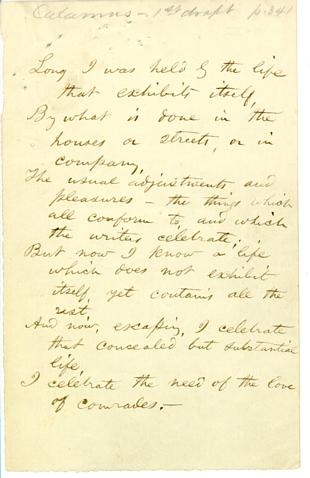 Calamus – 1st draft p. 341
Long I was held by the life
that exhibits itself,
By what is done in the
houses or streets, or in
company,
The usual adjustments and
pleasures – the things which
all conform to, and which
the writers celebrate;
But now I know a life
which does not exhibit
itself, yet contains all the
rest,
And now, escaping, I celebrate
that concealed but substantial
life,
I celebrate the need of the love
of comrades.–